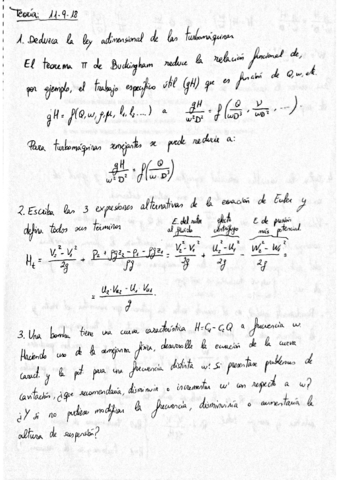 Teoría: 11-9-18
1. Deduzca la ley adimensional de las turbomáquinas
El teorema π de Buckingham reduce la relación funcional de,
por ejemplo, el trabajo específico útil (gH) que es función de Q, w, etc.
gH = f(Q, w, ρ, μ, l₁, l₂, ...) a gH/w²D² = f(Q/wD³, ν/wD², ...).
Para turbomáquinas semejantes se puede reducir a:
gH/w²D² = f(Q/wD³)
2. Escriba las 3 expresiones alternativas de la ecuación de Euler y
defina todos sus términos
E. del rotor al fluido efecto centrífugo E de presión más potencial
= V₂²-V₁²/2g + U₂²-U₁²/2g - W₂²-W₁²/2g =
= U₂·Vu₂ - U₁ Vu₁/g
3. Una bomba tiene una curva característica H=C₁-C₂Q a frecuencia w
Haciendo uso de la semejanza física, desarrolle la ecuación de la curva
caract y la pot para una frecuencia distinta w'. Si presentase problemas de
cavitación, ¿que recomendaría, disminuir o incrementar w' con respecto a w?
¿Y si no pudiese modificar la frecuencia, disminuiría o aumentaría la
altura de